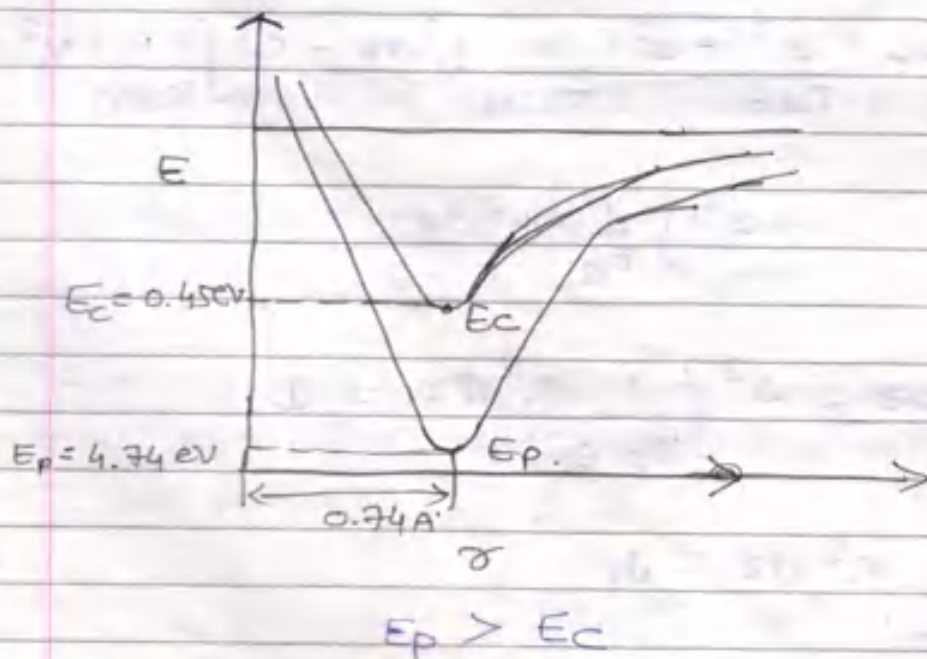 E
E_C = 0.45eV
E_C
E_p = 4.74 eV
E_p.
0.74 A°
r
E_p > E_C